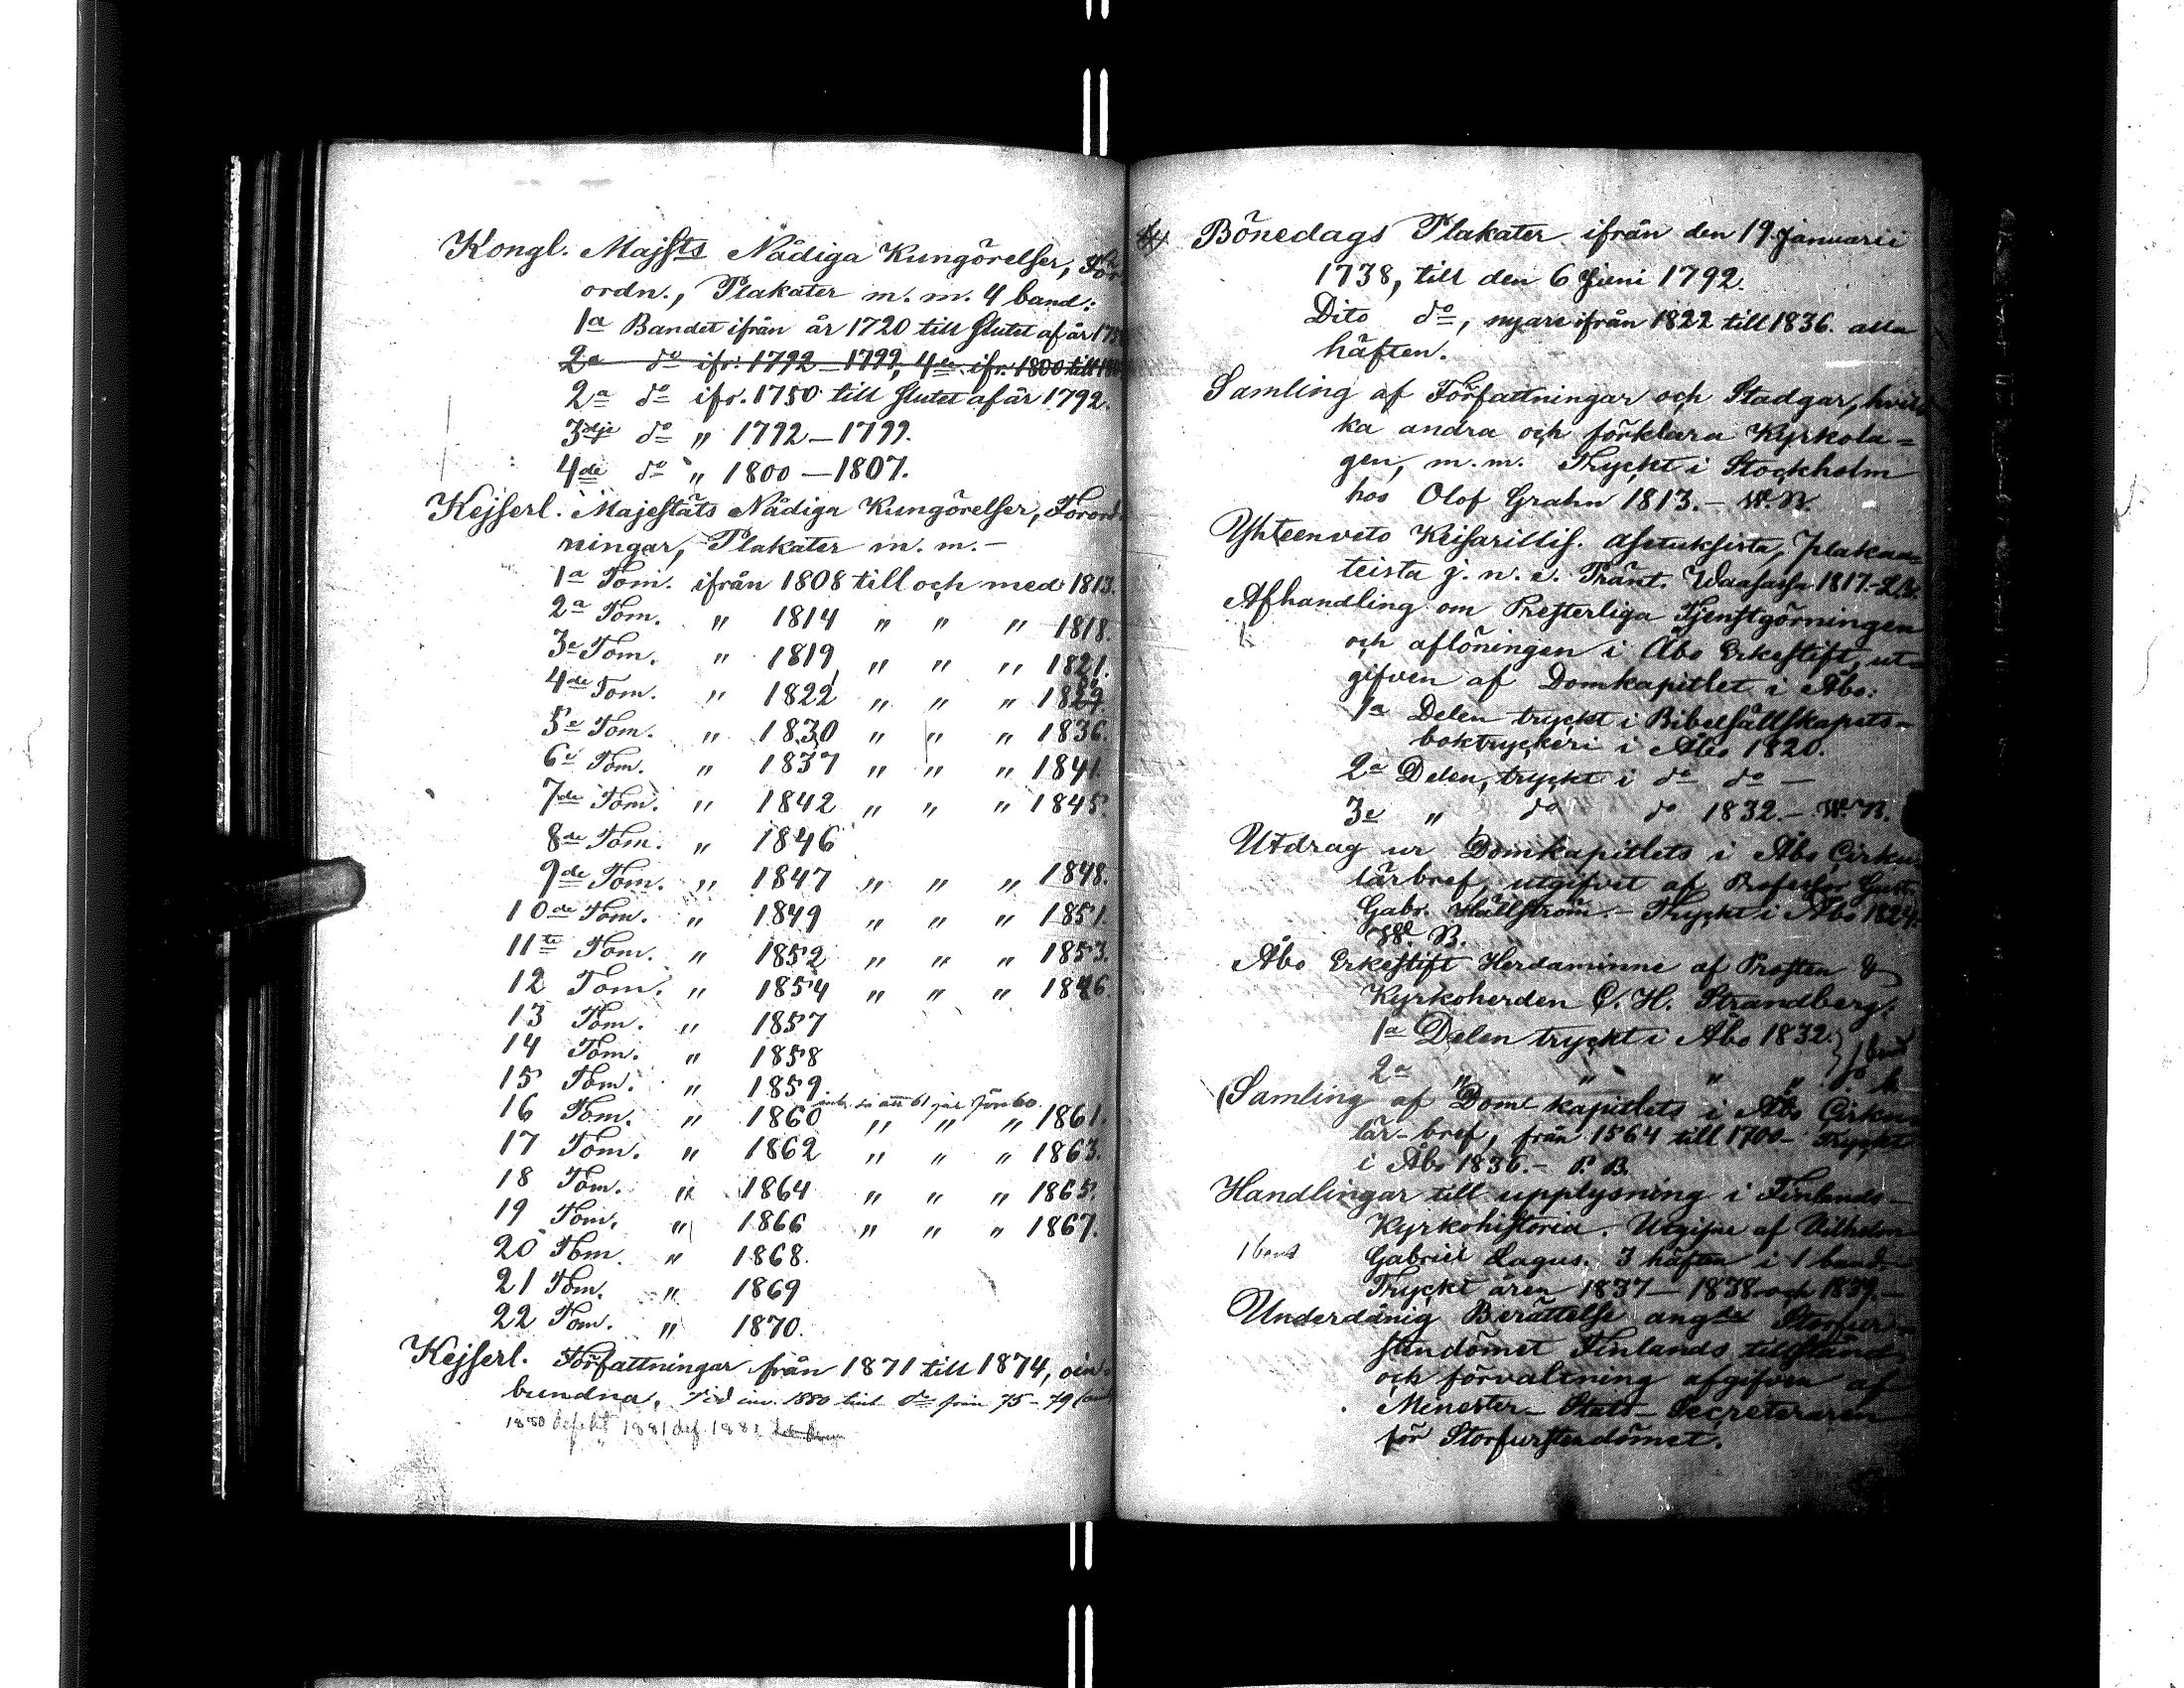 Kongl. Majsts Nådiga Kungörelser, För-
ordn., Plakater m. m. 4 band:
1a Bandet ifrån år 1720 till slutet af år 1750
2a do ifr. 1792–1799, 4de ifr. 1800 till
2a do ifr. 1750 till slutet af år 1792.
3dje do " 1792–1799.
4de do " 1800–1807.
Kejserl. Majestäts Nådiga Kungörelser, Förord-
ningar, Plakater m. m.–
1a Tom. ifrån 1808 till och med 1813.
2a Tom. " 1814 " " " 1818.
3e Tom. " 1819 " " " 1821.
4de Tom. " 1822 " " " 1829.
5e Tom. " 1830 " " " 1836.
6e Tom. " 1837 " " " 1841.
7de Tom. " 1842 " " " 1845.
8de Tom. " 1846
9de Tom. " 1847 " " " 1848.
10de Tom. " 1849 " " " 1851.
11te Tom. " 1852 " " " 1853.
12 Tom. " 1854 " " " 1846.
13 Tom. " 1857
14 Tom. " 1858
15 Tom. " 1859
16 Tom. " 1860 " " " 1861.
17 Tom. " 1862 " " " 1863.
18 Tom. " 1864 " " " 1865.
19 Tom. " 1866 " " " 1867.
20 Tom. " 1868.
21 Tom. " 1869
22 Tom. " 1870.
Kejserl. Författningar från 1871 till 1874, oin-
bundna. Vid inv. 1880 do från 75–79
1880 defekt 1881 def. 1882
Bönedags Plakater ifrån den 19 Januarii
1738, till den 6 Juni 1792.
Dito do, nyare ifrån 1822 till 1836. alla
häften.
Samling af Författningar och Stadgar, hvil-
ka andra och förklara Kyrkola=
gen, m. m. Tryckt i Stockholm
hos Olof Grahn 1813.– W. B.
Yhteenveto Keisarillis. Asetuksista, plakaa-
teista j. n. e. Pränt. Waasassa 1817.–
Afhandling om Presterliga Tjenstgörningen
och aflöningen i Åbo Erkestift, ut-
gifven af Domkapitlet i Åbo:
1a Delen tryckt i Bibelsällskapets-
boktryckeri i Åbo 1820.
2a Delen, tryckt i do do –
3e " do do 1832.– W. B.
Utdrag ur Domkapitlets i Åbo Cirku-
lärbref, utgifvit af Professor Gust.
Gabr. Hällström.– Tryckt i Åbo 1824.
W. B.
Åbo Erkestift Herdaminne af Prosten &
Kyrkoherden C. H. Strandberg:
1a Delen tryckt i Åbo 1832. } 1 band
2a " " " "
Samling af Domkapitlets i Åbo Cirku-
lär-bref, från 1564 till 1700– Tryckt
i Åbo 1836.– P. B.
Handlingar till upplysning i Finlands–
Kyrkohistoria. Utgifne af Vilhelm
1 band Gabriel Lagus. 3 häften i 1 band.–
Tryckt åren 1837–1838 och 1839.–
Underdånig Berättelse angde Storfur-
stendömet Finlands tillstånd
och förvaltning afgifven af
Minester–Stats–Secreteraren
för Storfurstendömet.